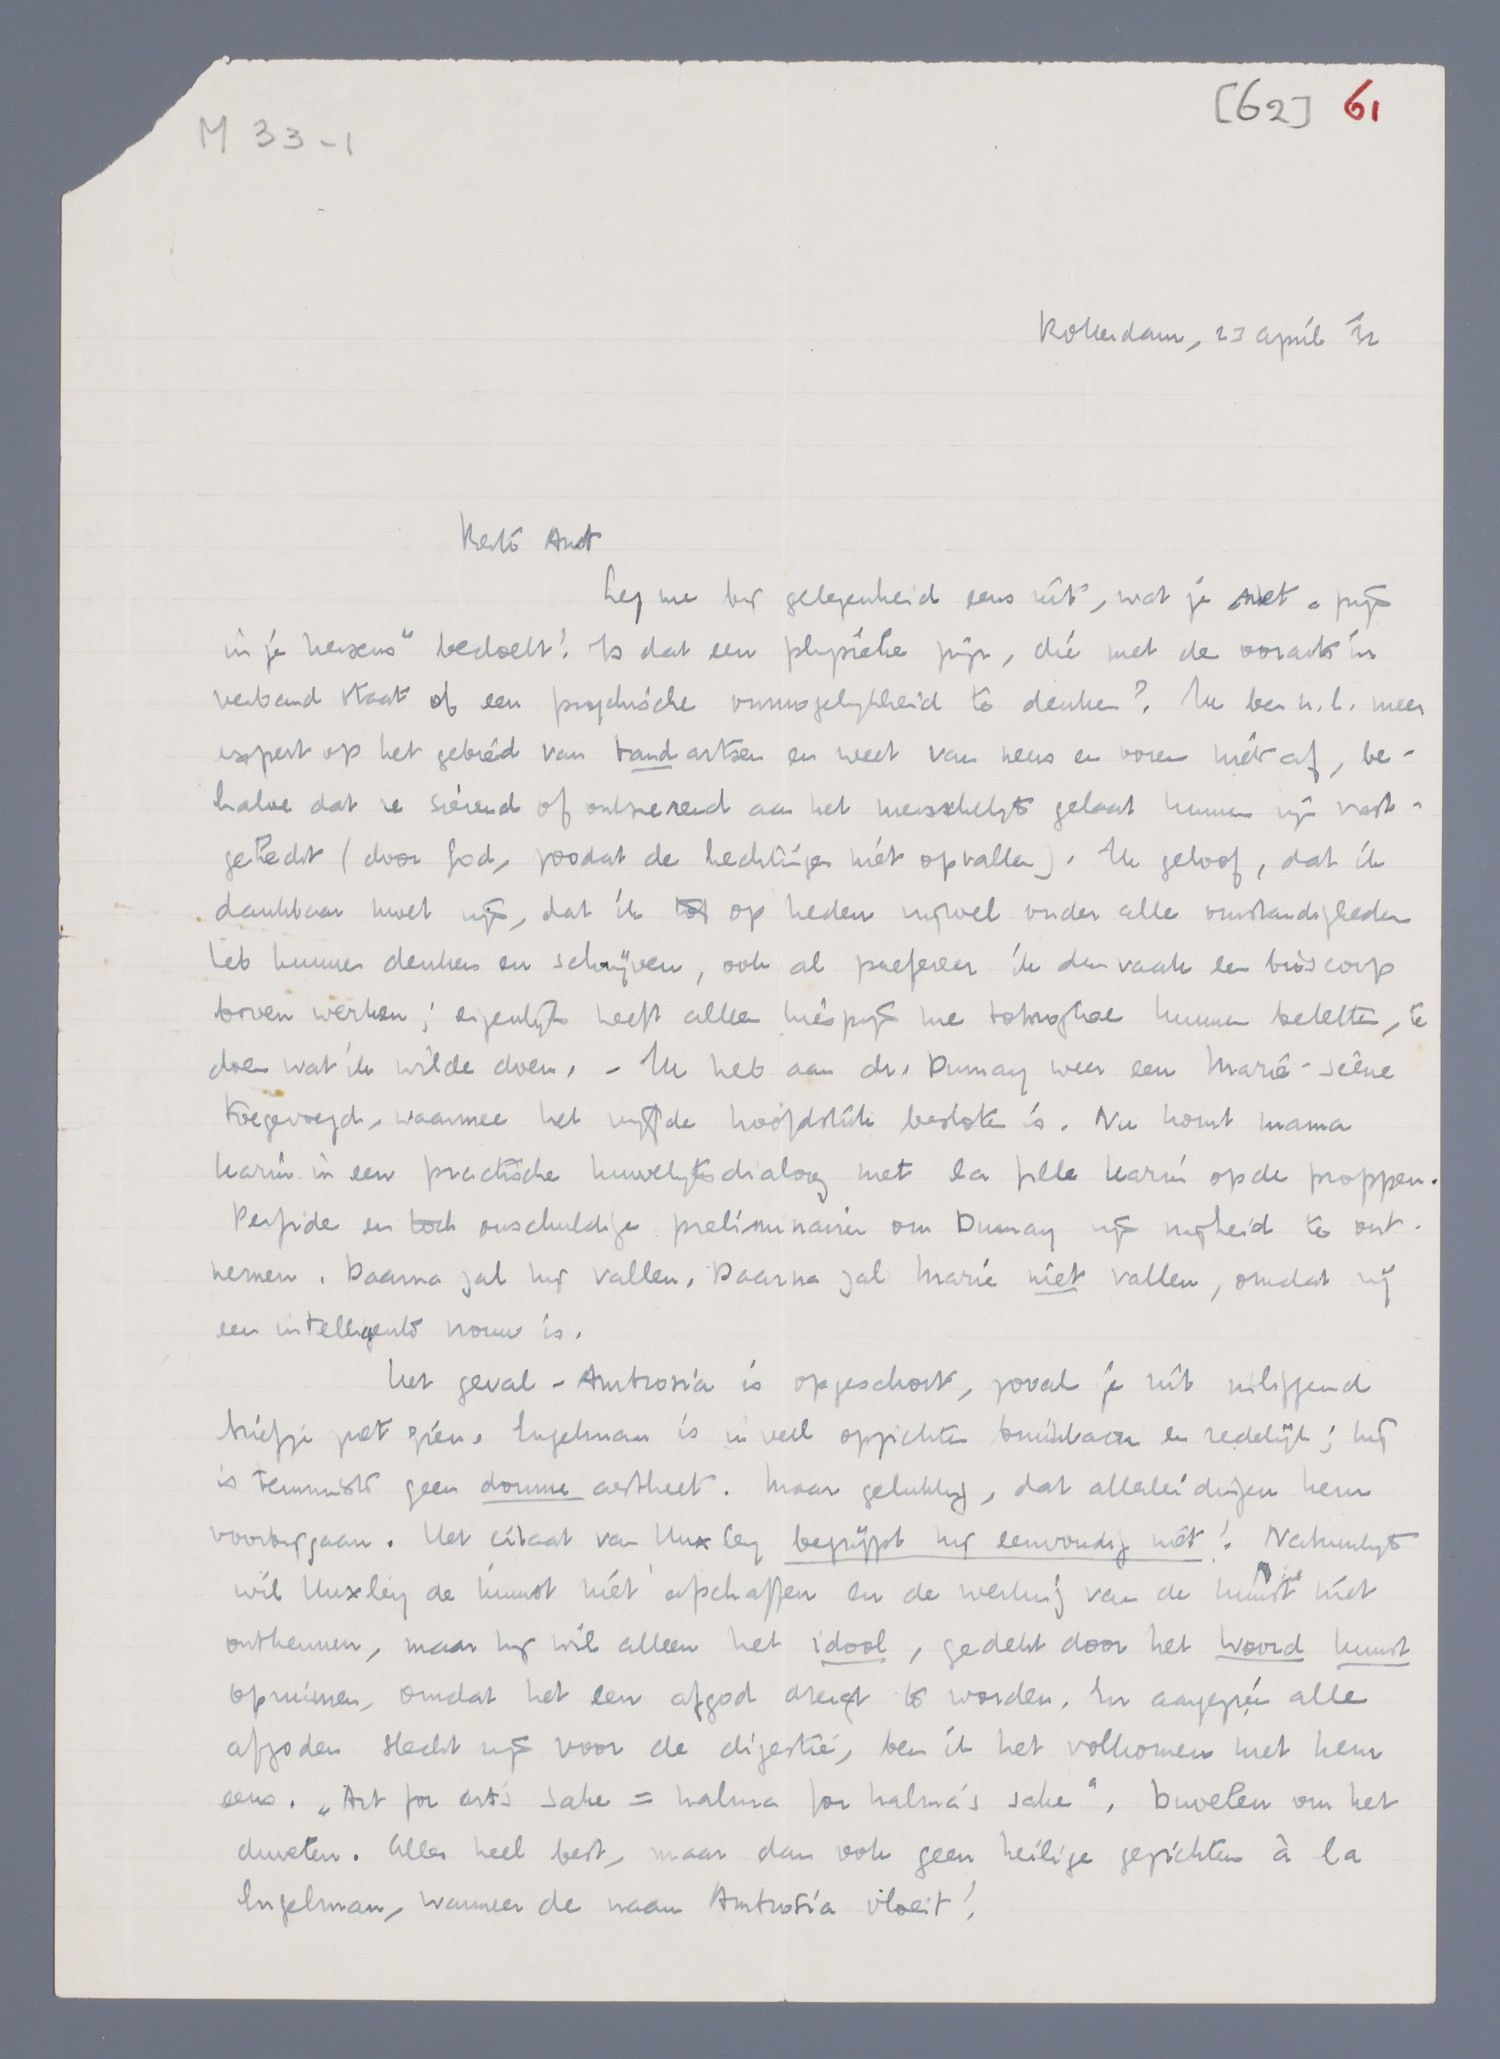 M 33-1
[62] 61
Rotterdam, 23 april '32
Beste Ant
Leg me bij gelegenheid eens uit, wat je met „pijn
in je hersens" bedoelt! Is dat een physieke pijn, die met de oorarts in
verband staat of een psychische onmogelijkheid te denken? Ik ben n.l. meer
expert op het gebied van tandartsen en weet van neus en ooren niets af, be-
halve dat ze sierend of ontsierend aan het menschelijk gelaat kunnen zijn vast-
gehecht (door God, zoodat de hechtingen niet opvallen). Ik geloof, dat ik
dankbaar moet zijn, dat ik tot op heden vrijwel onder alle omstandigheden
heb kunnen denken en schrijven, ook al prefereer ik dan vaak een bioscoop
boven werken; eigenlijk heeft alleen kiespijn me totnogtoe kunnen beletten, te
doen wat ik wilde doen. – Ik heb aan dr. Dumay weer een Marie-scène
toegevoegd, waarmee het vijfde hoofdstuk besloten is. Nu komt mama
Karin in een practische huwelijksdialoog met la fille Karin op de proppen.
Perfide en toch onschuldige preliminairen om Dumay zijn vrijheid te ont-
nemen. Daarna zal hij vallen. Daarna zal Marie niet vallen, omdat zij
een intelligente vrouw is.
Het geval-Ambrosia is opgeschort, zooals je uit nijlijgend
briefje ziet. Engelman is in veel opzichten bruikbaar en redelijk; hij
is tenminste geen domme aestheet. Maar gelukkig, dat allerlei dingen hem
voorbijgaan. Het citaat van Huxley begrijpt hij eenvoudig niet! Natuurlijk
wil Huxley de kunst niet afschaffen en de werking van de kunst niet
ontkennen, maar hij wil alleen het idool, gedekt door het woord kunst
opruimen, omdat het een afgod dreigt te worden. En aangezien alle
afgoden slecht zijn voor de digestie, ben ik het volkomen met hem
eens. „Art for art's sake = halma for halma's sake". Duvelen om het
duvelen. Alles heel best, maar dan ook geen heilige gezichten à la
Engelman, wanneer de naam Ambrosia vloeit!